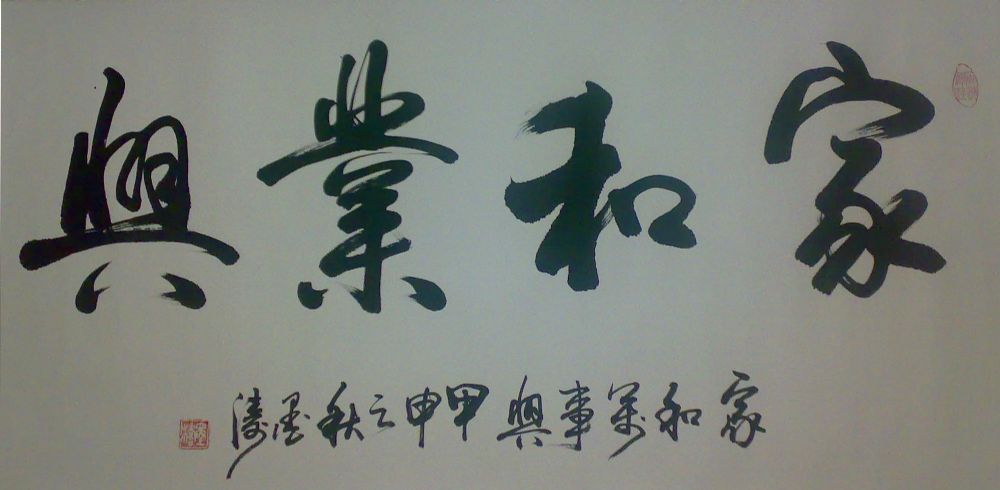 家和業興
家和萬事興 甲申之秋 墨濤